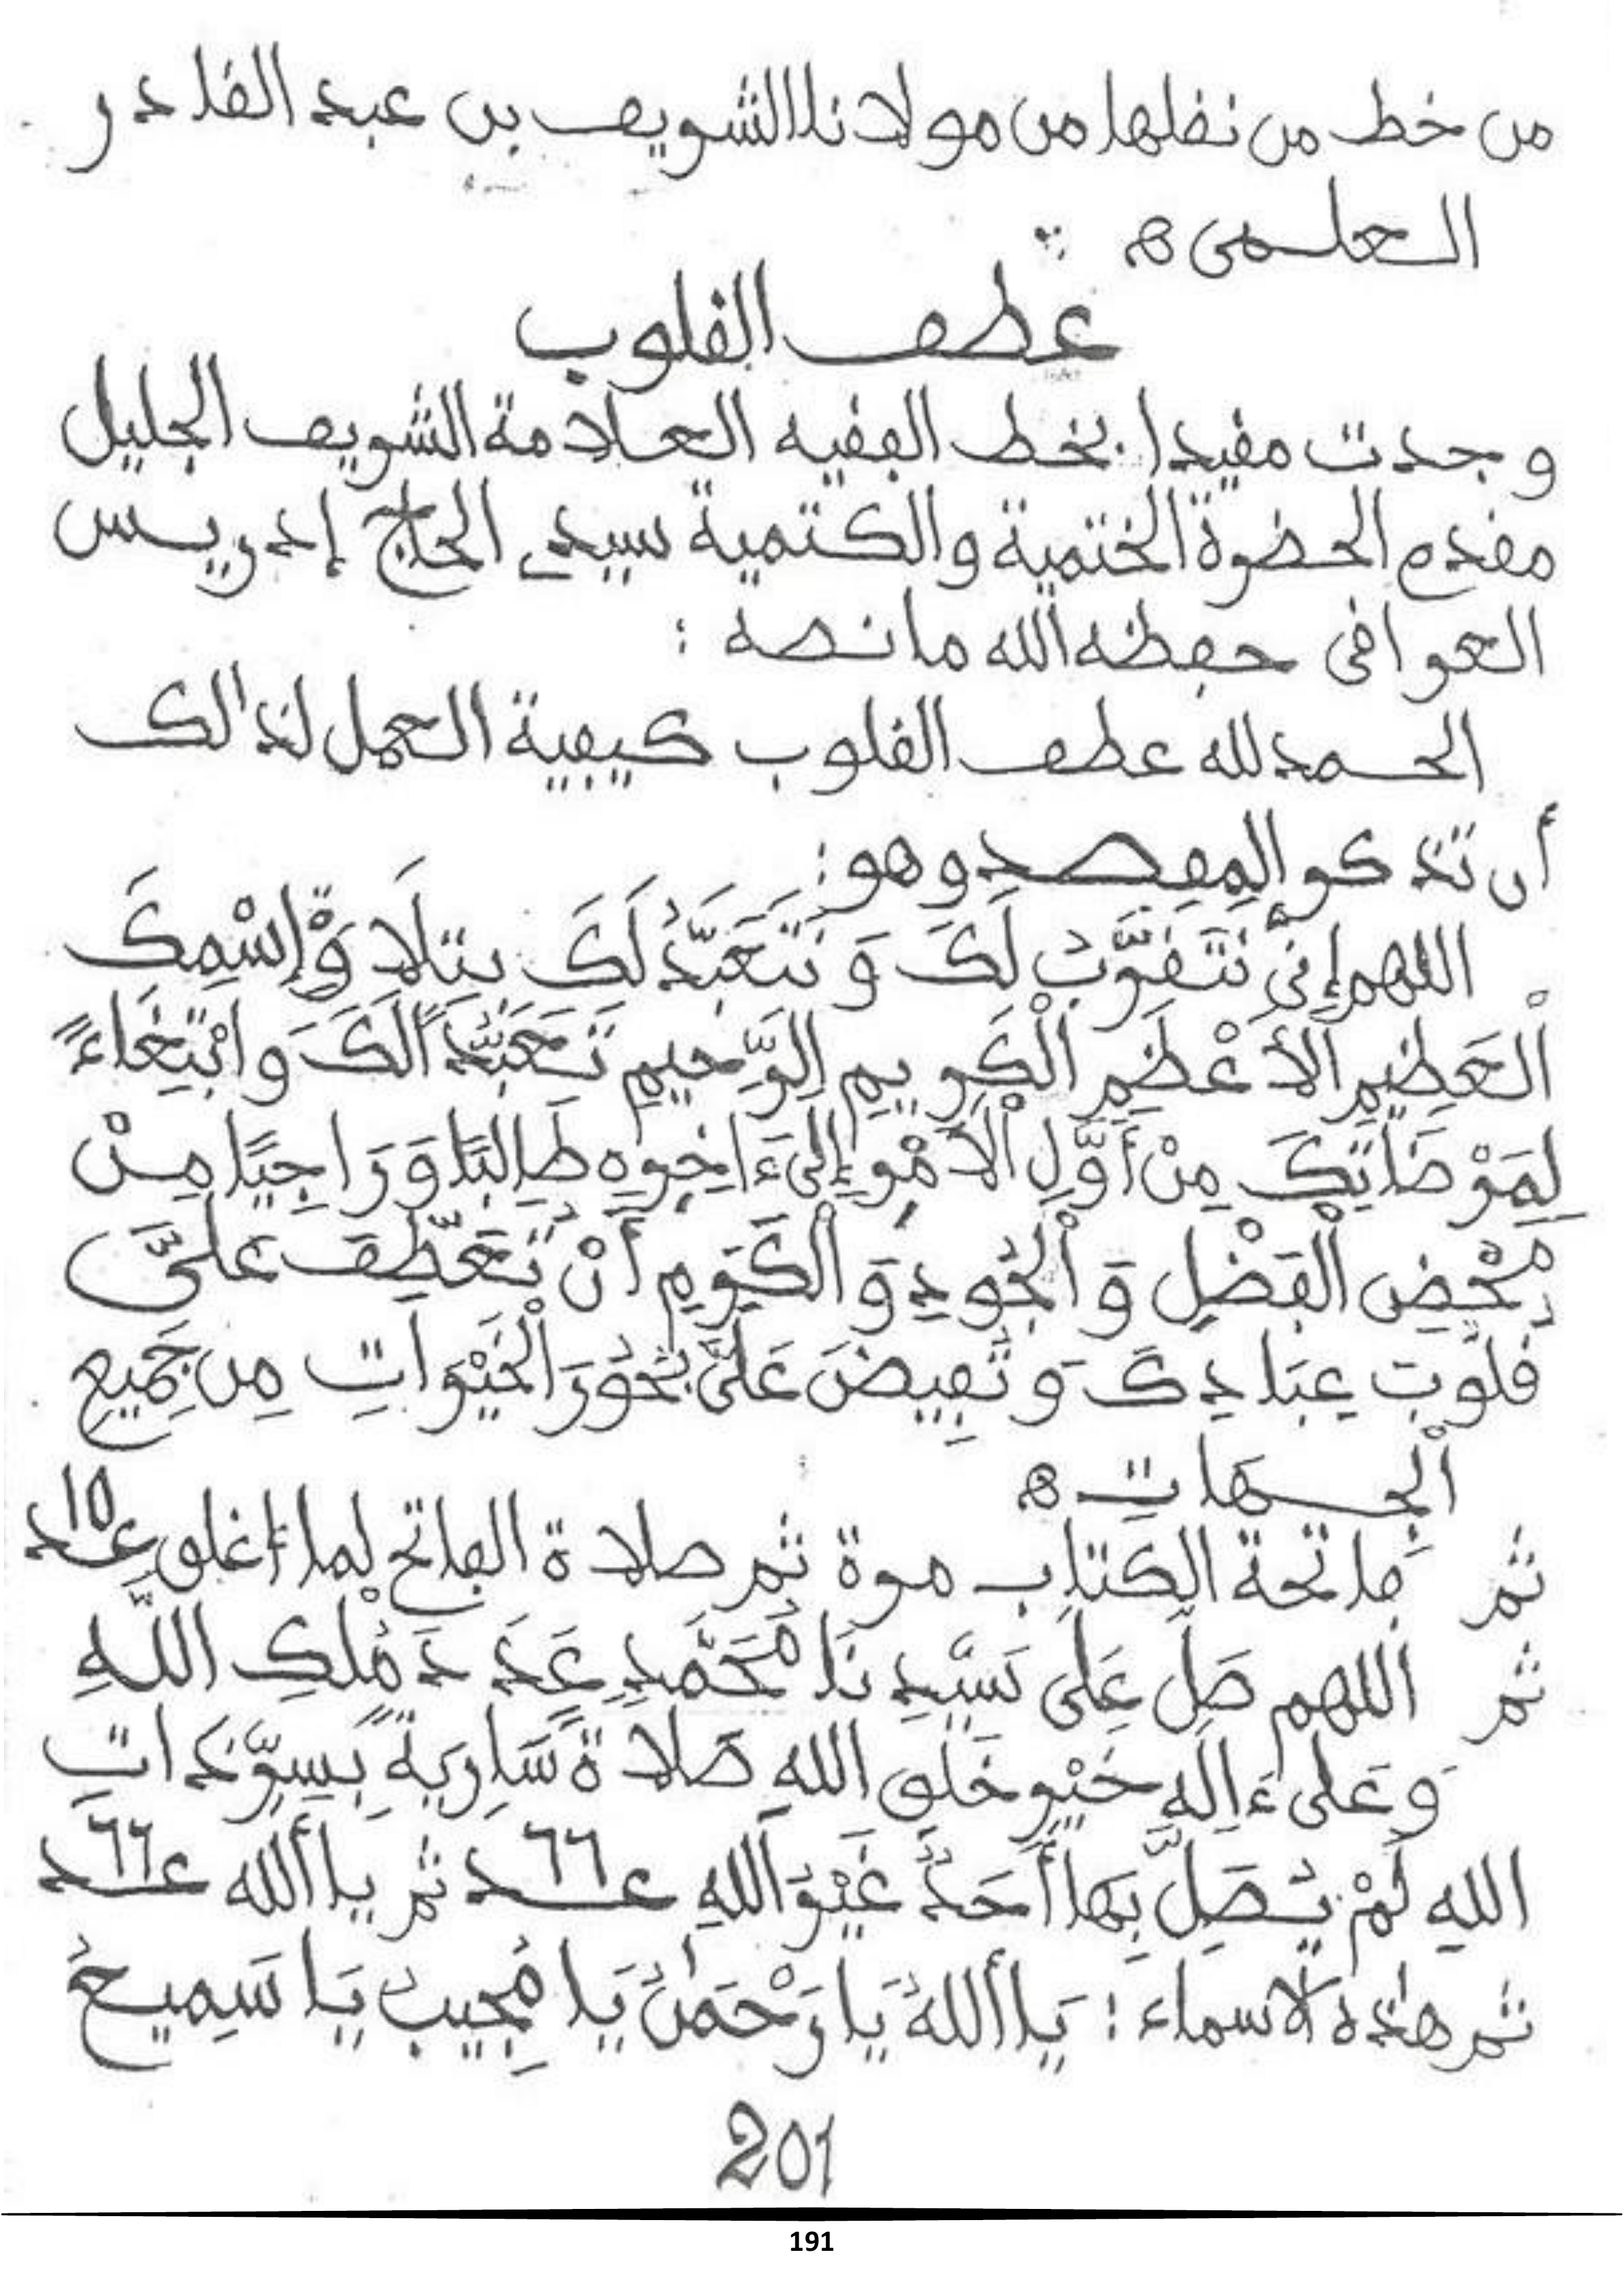 من خط من نقلها من مولانا الشريف بن عبد القادر
العلمى ه
عطف القلوب
وجدت مقيدا بخط الفقيه العلامة الشريف الجليل
مقدم الحضرة الختمية والكتمية سيدي الحاج إدريس
العراقى حفظه الله ما نصه :
الحمد لله عطف القلوب كيفية العمل لذالك
أن تذكر المقصد وهو :
اللهم إِنِّى نَتَقَرَّبُ لَكَ وَنَتَعَبَّدُ لَكَ بتلَاوَةِ إِسْمِكَ
الْعَظِيمِ الأَعْظَمِ الْكَرِيمِ الرَّحِيمِ تَعَبُّدًا لَكَ وَابْتِغَاءً
لِمَرْضَاتِكَ مِنْ أَوَّلِ الْأَمْرِ إِلَىٰ ءَاخِرِهِ طَالِبًا وَرَاجِيًا مِنْ
مَحْضِ الْفَضْلِ وَالْجُودِ وَالْكَرَمِ أَنْ تُعَطِّفَ عَلَىَّ
قُلُوبَ عِبَادِكَ وَتُفِيضَ عَلَىَّ بُحُورَ الْخَيْرَاتِ مِن جَمِيعِ
الْجِهَاتِ ه
ثم فاتحة الكتاب مرة ثم صلاة الفاتح لما اغلق عدد 10
ثم اللهم صَلِّ عَلَى سَيِّدِنَا مُحَمَّدٍ عَدَدَ مُلْكِ اللَّهِ
وَعَلَى ءَالِهِ خَيْرِ خَلْقِ اللهِ صَلَاةً سَارِيَةً بِسِرِّ ذَاتِ
اللهِ لَمْ يُصَلِّ بِهَا أَحَدٌ غَيْرَ اللهِ عدد 66 ثم يا ألله عدد 66
ثم هذه الاسماء : يَا أللهُ يَا رَحْمَٰنُ يَا مُجِيبُ يَا سَمِيعُ
201
191